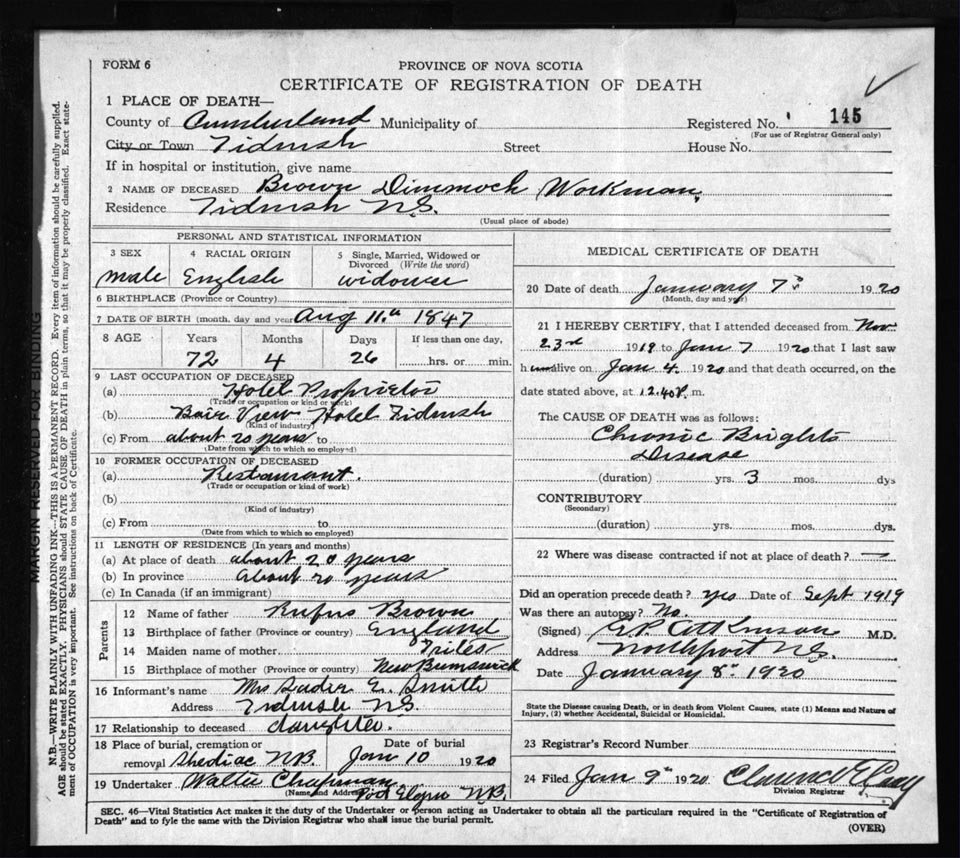 FORM 6
PROVINCE OF NOVA SCOTIA
CERTIFICATE OF REGISTRATION OF DEATH
1 PLACE OF DEATH—
County of Cumberland Municipality of Registered No. 145
(For use of Registrar General only)
City or Town Tidnish Street House No.
If in hospital or institution, give name
2 NAME OF DECEASED Brown Dimmock Workman
Residence Tidnish N.S.
(Usual place of abode)
PERSONAL AND STATISTICAL INFORMATION
3 SEX 4 RACIAL ORIGIN 5 Single, Married, Widowed or Divorced (Write the word)
male English widower
6 BIRTHPLACE (Province or Country)
7 DATE OF BIRTH (month, day and year) Aug 11th 1847
8 AGE Years Months Days If less than one day,
72 4 26 hrs. or min.
9 LAST OCCUPATION OF DECEASED
(a) Hotel Proprietor
(Trade or occupation or kind of work)
(b) Hotel Tidnish
(Kind of industry)
(c) From about 20 years to
(Date from which to which so employed)
10 FORMER OCCUPATION OF DECEASED
(a) Restaurant.
(Trade or occupation or kind of work)
(b)
(Kind of industry)
(c) From to
(Date from which to which so employed)
11 LENGTH OF RESIDENCE (In years and months)
(a) At place of death about 20 years
(b) In province about 20 years
(c) In Canada (if an immigrant)
Parents
12 Name of father Rufus Brown
13 Birthplace of father (Province or country) England
14 Maiden name of mother Trites
15 Birthplace of mother (Province or country) New Brunswick
16 Informant's name Mrs Sadie E. Smith
Address Tidnish N.S.
17 Relationship to deceased daughter.
18 Place of burial, cremation or removal Shediac N.B. Date of burial Jan 10 1920
19 Undertaker Walter Chapman
(Name and Address) Port Elgin N.B.
MEDICAL CERTIFICATE OF DEATH
20 Date of death January 7th 1920
(Month, day and year)
21 I HEREBY CERTIFY, that I attended deceased from Nov.
23rd 1919 to Jan 7 1920 that I last saw
h alive on Jan 4 1920 and that death occurred, on the
date stated above, at 12.40 P. m.
The CAUSE OF DEATH was as follows:
Chronic Brights
Disease
(duration) yrs. 3 mos. dys
CONTRIBUTORY
(Secondary)
(duration) yrs. mos. dys.
22 Where was disease contracted if not at place of death? —
Did an operation precede death? yes Date of Sept 1919
Was there an autopsy? No.
(Signed) Atkinson M.D.
Address Northport N.S.
Date January 8th 1920
State the Disease causing Death, or in death from Violent Causes, state (1) Means and Nature of
Injury, (2) whether Accidental, Suicidal or Homicidal.
23 Registrar's Record Number
24 Filed Jan 9th 1920 Clarence
Division Registrar
SEC. 46—Vital Statistics Act makes it the duty of the Undertaker or person acting as Undertaker to obtain all the particulars required in the "Certificate of Registration of
Death" and to fyle the same with the Division Registrar who shall issue the burial permit.
(OVER)
MARGIN RESERVED FOR BINDING
N.B.—WRITE PLAINLY WITH UNFADING INK—THIS IS A PERMANENT RECORD. Every item of information should be carefully supplied.
AGE should be stated EXACTLY. PHYSICIANS should STATE CAUSE OF DEATH in plain terms, so that it may be properly classified. Exact statement
of OCCUPATION is very important. See instructions on back of Certificate.